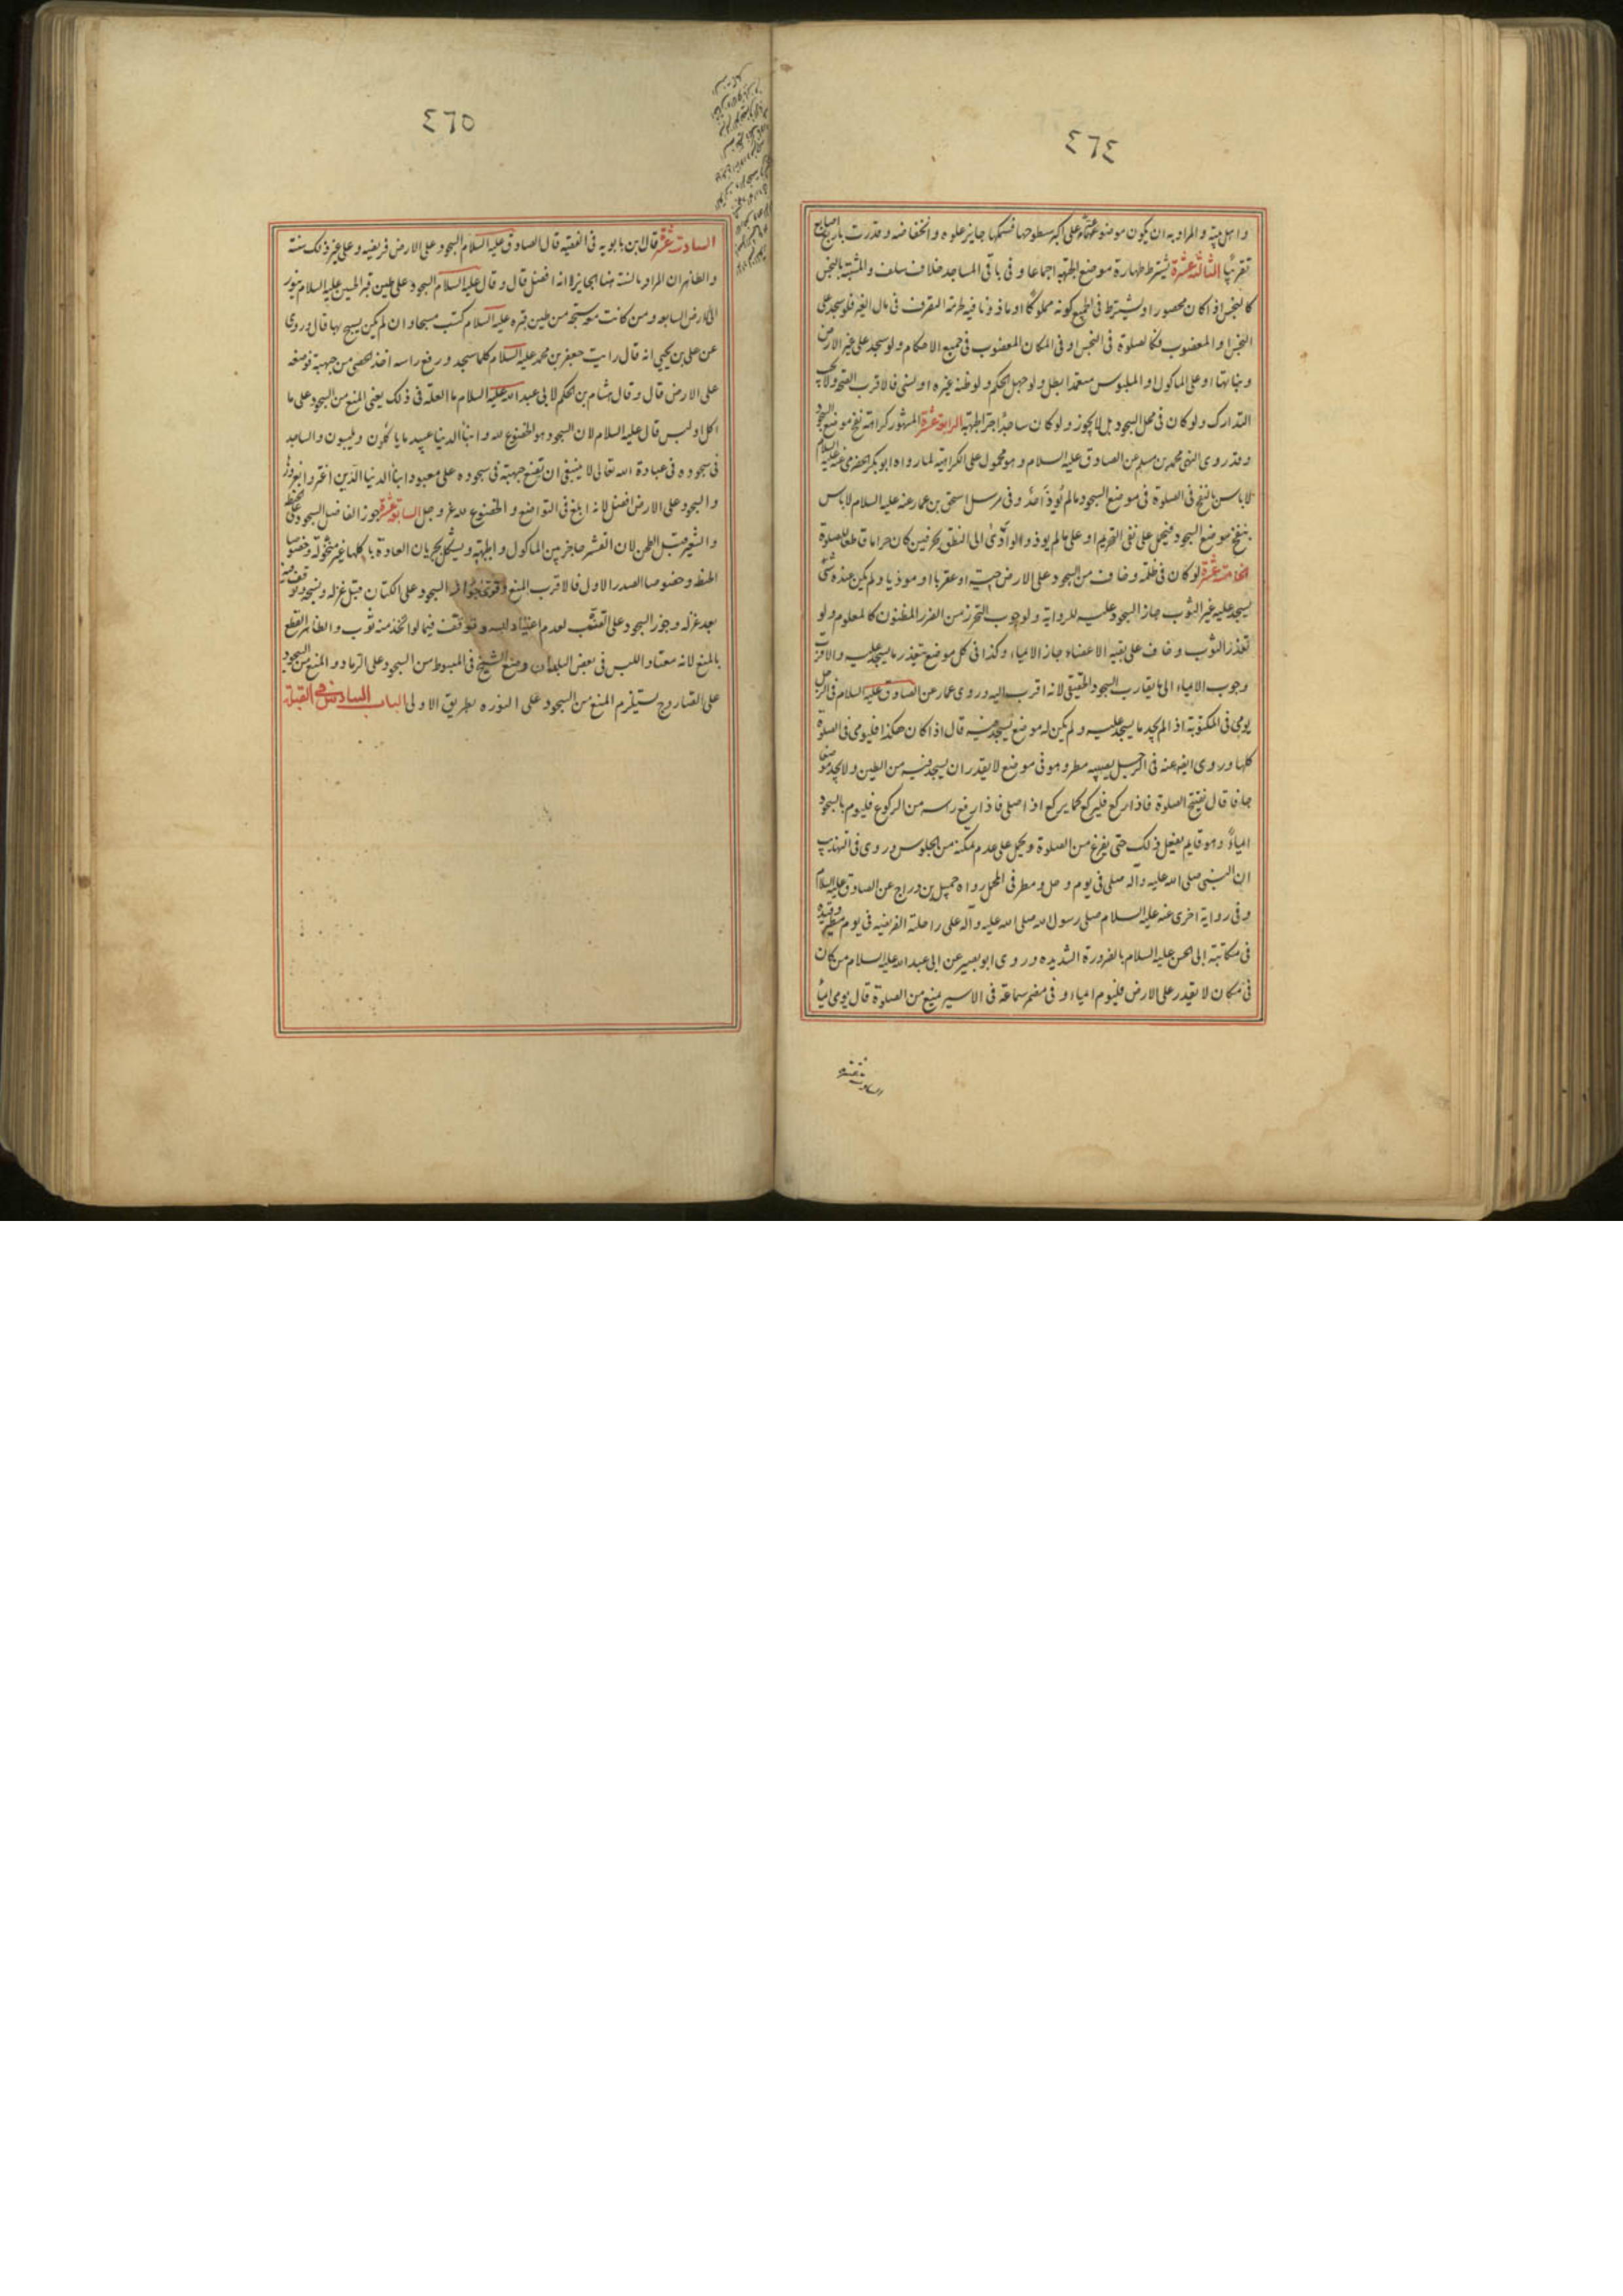 ٤٦٤
واهل ميّة والمراد به ان يكون موضوعهما على اكبر سطوحها فسمكها جايز علوه وانخفاضه وقدرت باربع اصابع
تقريبًا الثالثة عشرة يشترط طهارة موضع الجبهة اجماعا وفى باقى المساجد خلاف سلف والمشتبه بالنجس
كالنجس اذا كان محصورا ويشترط فى الجميع كونه مملوكًا او ماذونا فيه لحرمة التصرف فى مال الغير فلو سجد على
النجس او المغصوب فكالصلوة فى النجس او فى المكان المغصوب فى جميع الاحكام ولو سجد على غير الارض
ونباتها او على الماكول او الملبوس متعمدا بطل ولو جهل الحكم ولو ظنه غيره او نسى فالاقرب الصحة ولا يجب
التدارك ولو كان فى محل السجود بل لا يجوز ولو كان ساجدًا جر الجبهة الرابعة عشرة المشهور كراهة نفخ موضع السجود
وقد روى النهى محمد بن مسلم عن الصادق عليه السلام وهو محمول على الكراهية لما رواه ابو بكر الحضرمى عنه عليه السلام
لا باس بالنفخ فى الصلوة فى موضع السجود ما لم يُوذِ اَحدًا وفى مرسل اسحق بن عمار عنه عليه السلام لا باس
بنفخ موضع السجود فيحمل على نفى التحريم او على ما لم يوذ ولو ادّى الى النطق بحرفين كان حراما قاطعا للصلوة
الخامسة عشرة لو كان فى ظلمة وخاف من السجود على الارض حية او عقربا او موذيا ولم يكن عنده شئ
يسجد عليه غير الثوب جاز السجود عليه للرواية ولوجوب التحرز من الضرر المظنون كالمعلوم ولو
تعذر الثوب وخاف على بقية الاعضاء جاز الايماء وكذا فى كل موضع تعذر ما يسجد عليه والاقرب
وجوب الايماء الى ما يقارب السجود الحقيقى لانه اقرب اليه وروى عمار عن الصادق عليه السلام فى الرجل
يومى فى المكتوبة اذا لم يجد ما يسجد عليه ولم يكن له موضع يسجد فيه قال اذا كان هكذا فليومى فى الصلوة
كلها وروى ايضا عنه فى الرجل يصيبه مطر وهو فى موضع لا يقدر ان يسجد فيه من الطين ولا يجد موضعا
جافا قال يفتتح الصلوة فاذا ركع فليركع كما يركع اذا صلى فاذا رفع راسه من الركوع فليوم بالسجود
ايماءً وهو قايم يفعل ذلك حتى يفرغ من الصلوة ويحمل على عدم تمكنه من الجلوس وروى فى التهذيب
ان النبى صلى الله عليه وآله صلى فى يوم وحل ومطر فى المحمل رواه جميل بن دراج عن الصادق عليه السلام
وفى رواية اخرى عنه عليه السلام صلى رسول الله صلى الله عليه وآله على راحلته الفريضة فى يوم مطير وقيده
فى مكاتبة ابى الحسن عليه السلام بالضرورة الشديده وروى ابو بصير عن ابى عبد الله عليه السلام من كان
فى مكان لا يقدر على الارض فليوم ايماء وفى مضمر سماعة فى الاسير يمنع من الصلوة قال يومى ايماءً
السادسة عشرة
٤٦٥
السادسة عشرة قال ابن بابويه فى الفقيه قال الصادق عليه السلام السجود على الارض فريضة وعلى غير ذلك سنة
والظاهر ان المراد بالسنة هنا الجايز لا انه افضل قال وقال عليه السلام السجود على طين قبر الحسين عليه السلام ينور
الى الارض السابعة ومن كانت معه سبحة من طين قبره عليه السلام كتب مسبحا وان لم يكن يسبح بها قال وروى
عن على بن يحيى انه قال رايت جعفر بن محمد عليه السلام كلما سجد ورفع راسه اخذ الحصى من جبهته فوضعه
على الارض قال وقال هشام بن الحكم لابى عبد الله عليه السلام ما العلة فى ذلك يعنى المنع من السجود على ما
اكل او لبس قال عليه السلام لان السجود هو الخضوع لله وابناء الدنيا عبيد ما ياكلون ويلبسون والساجد
فى سجوده فى عبادة الله تعالى لا ينبغى ان يضع جبهته فى سجوده على معبود ابناء الدنيا الذين اغتروا بغرورها
والسجود على الارض افضل لانه ابلغ فى التواضع والخضوع لله عز وجل السابعة عشرة جوز الفاضل السجود على الحنطة
والشعير قبل الطحن لان القشر حاجز بين الماكول والجبهة ويشكل بجريان العادة باكلها غير منخولة وخصوصا
الحنطة وخصوصا الصدر الاول فالاقرب المنع وقوى جواز السجود على الكتان قبل غزله ونسجه وتوقف فيه
بعد غزله وجوز السجود على القنّب لعدم اعتياد لبسه وتوقف فيما لو اتخذ منه ثوب والظاهر القطع
بالمنع لانه معتاد اللبس فى بعض البلدان ومنع الشيخ فى المبسوط من السجود على الرماد والمنع من السجود
على الصاروج يستلزم المنع من السجود على النوره بطريق الاولى الباب السادس فى القبلة